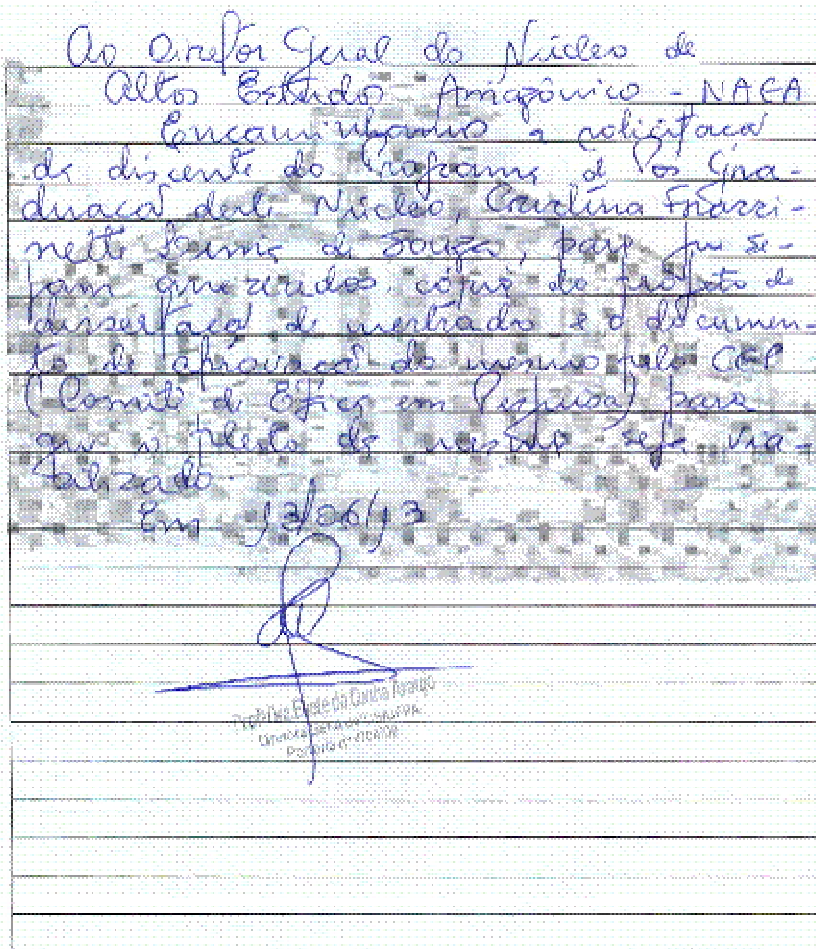 Ao Diretor Geral do Núcleo de
Altos Estudos Amazônico - NAEA
Encaminhamo a solicitaçã
da discente do Programa de Pós Gra-
duaçã deste Núcleo, Carolina
de Souza, para que se-
jam cópia do projeto de
dissertaçã de mestrado e o documen-
to de aprovaçã do mesmo pelo CEP
(Comitê de Ética em Pesquisa) para
que o pleito da seja via-
lizado.
Em 13/06/13
Profª Dra. da Cunha Araujo